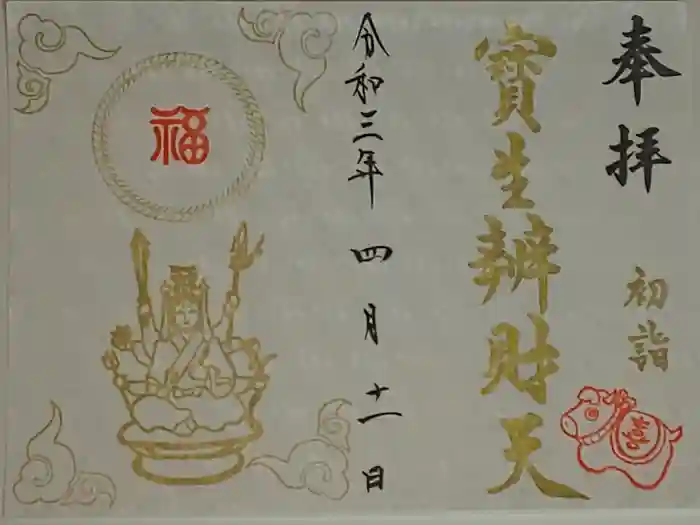 奉拝
初詣
寳生辨財天
令和三年 四月 十一日
福